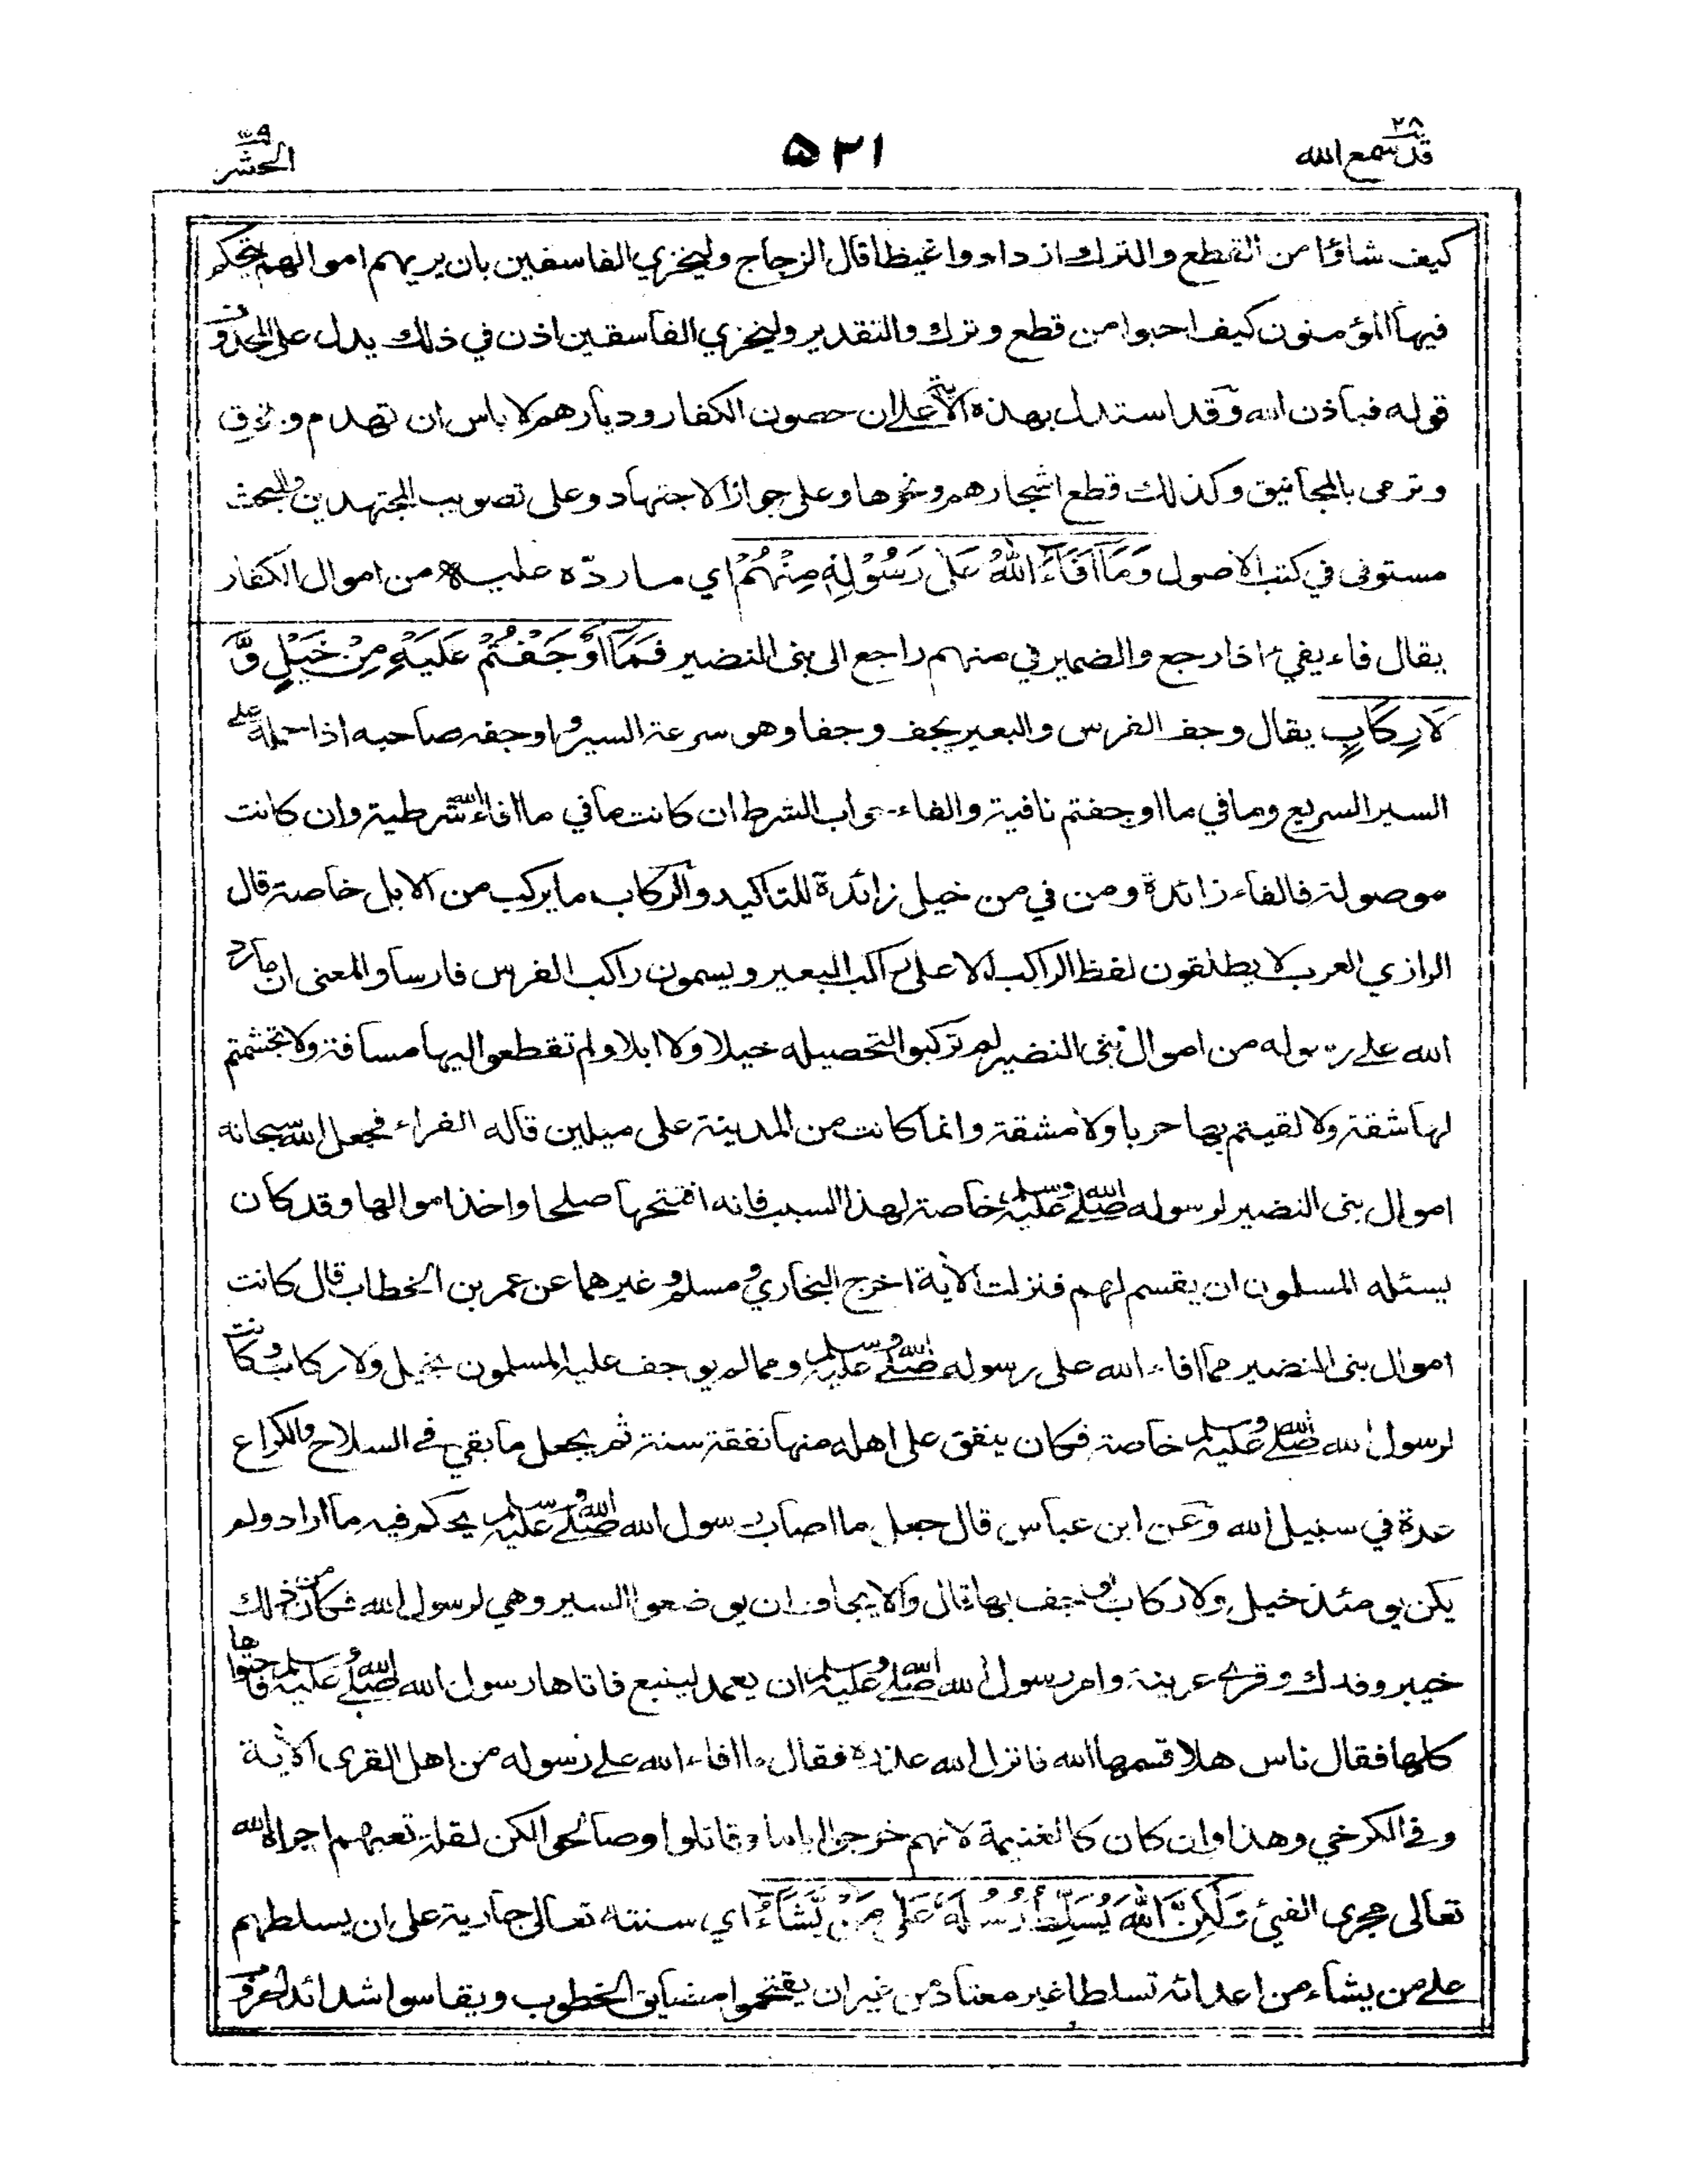 قد سمع الله ٢٨
٥٢١
الحشر ٥٩
كيف شاؤا من القطع والترك ازدادوا غيظا قال الزجاج وليخزي الفاسقين بان يريهم اموالهم يتحكم
فيها المؤمنون كيف احبوا من قطع وترك والتقدير وليخزي الفاسقين اذن في ذلك يدل على المحذوف
قوله فباذن الله وقد استدل بهذه الآية على ان حصون الكفار وديارهم لا باس ان تهدم وتحرق
وترمى بالمجانيق وكذلك قطع اشجارهم ونحوها وعلى جواز الاجتهاد وعلى تصويب المجتهدين والبحث
مستوفى في كتب الاصول وَمَآ اَفَآءَ اللّٰهُ عَلٰى رَسُوْلِهٖ مِنْهُمْ اي ما ردّه عليه من اموال الكفار
يقال فاء يفيء اذا رجع والضمير في منهم راجع الى بنى النضير فَمَآ اَوْجَفْتُمْ عَلَيْهِ مِنْ خَيْلٍ وَّ
لَا رِكَابٍ يقال وجف الفرس والبعير يجف وجفا وهو سرعة السير واوجفه صاحبه اذا حمله على
السير السريع وما في ما اوجفتم نافية والفاء جواب الشرط ان كانت ما في ما افاء الله شرطية وان كانت
موصولة فالفاء زائدة ومن في من خيل زائدة للتاكيد والركاب ما يركب من الابل خاصة قال
الرازي العرب لا يطلقون لفظ الراكب الا على راكب البعير ويسمون راكب الفرس فارسا والمعنى ان ما رد
الله على رسوله من اموال بنى النضير لم تركبوا لتحصيله خيلا ولا ابلا ولم تقطعوا اليها مسافة ولا تجشمتم
لها شقة ولا لقيتم بها حربا ولا مشقة وانما كانت من المدينة على ميلين قاله الفراء فجعل الله سبحانه
اموال بنى النضير لرسوله صلى الله عليه وسلم خاصة لهذا السبب فانه افتتحها صلحا واخذ اموالها وقد كان
يسئله المسلمون ان يقسم لهم فنزلت الآية اخرج البخاري ومسلم وغيرهما عن عمر بن الخطاب قال كانت
اموال بنى النضير مما افاء الله على رسوله صلى الله عليه وسلم ومما لم يوجف عليه المسلمون بخيل ولا ركاب وكانت
لرسول الله صلى الله عليه وسلم خاصة فكان ينفق على اهله منها نفقة سنة ثم يجعل ما بقي في السلاح والكراع
عدة في سبيل الله وعن ابن عباس قال جعل ما اصاب رسول الله صلى الله عليه وسلم يحكم فيه ما اراد ولم
يكن يومئذ خيل ولا ركاب اوجف بها قال والايجاف ان يوضعوا السير وهي لرسول الله فكان من ذلك
خيبر وفدك وقرى عرينة وامر رسول الله صلى الله عليه وسلم ان يعمد لينبع فاتاها رسول الله صلى الله عليه وسلم فاحتواها
كلها فقال ناس هلا قسمها الله فانزل الله عذره فقال ما افاء الله على رسوله من اهل القرى الآية
وفي الكرخي وهذا وان كان كالغنيمة لانهم خرجوا اياما وقاتلوا وصالحوا لكن لقلة تعبهم اجراه الله
تعالى مجرى الفيئ وَلٰكِنَّ اللّٰهَ يُسَلِّطُ رُسُلَهٗ عَلٰى مَنْ يَّشَآءُ اي سنته تعالى جارية على ان يسلطهم
على من يشاء من اعدائه تسلطا غير معتاد من غير ان يقتحموا مضايق الخطوب ويقاسوا شدائد الحروب